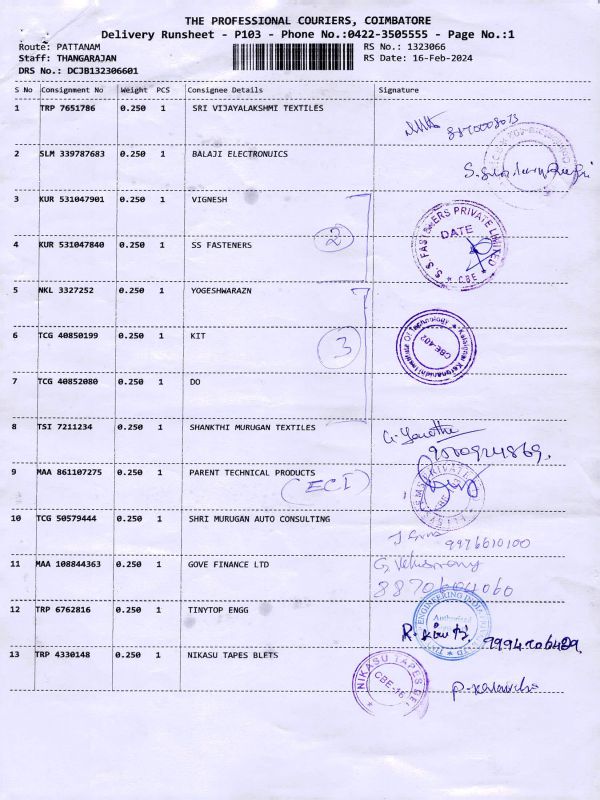 THE PROFESSIONAL COURIERS, COIMBATORE
Delivery Runsheet - P103 - Phone No.:0422-3505555 - Page No.:1
Route: PATTANAM RS No.: 1323066
Staff: THANGARAJAN RS Date: 16-Feb-2024
DRS No.: DCJB132306601
S No Consignment No Weight PCS Consignee Details Signature
1 TRP 7651786 0.250 1 SRI VIJAYALAKSHMI TEXTILES
2 SLM 339787683 0.250 1 BALAJI ELECTRONUICS
3 KUR 531047901 0.250 1 VIGNESH
S. S. FASTENERS PRIVATE LIMITED
DATE
CBE
2
4 KUR 531047840 0.250 1 SS FASTENERS
5 NKL 3327252 0.250 1 YOGESHWARAZN
6 TCG 40850199 0.250 1 KIT
3
Kalaignar Karunanidhi Institute Of Technology
CBE-402
7 TCG 40852080 0.250 1 DO
8 TSI 7211234 0.250 1 SHANKTHI MURUGAN TEXTILES
9 MAA 861107275 0.250 1 PARENT TECHNICAL PRODUCTS
(ECI)
10 TCG 50579444 0.250 1 SHRI MURUGAN AUTO CONSULTING
9976610100
11 MAA 108844363 0.250 1 GOVE FINANCE LTD
12 TRP 6762816 0.250 1 TINYTOP ENGG
ENGINEERING
13 TRP 4330148 0.250 1 NIKASU TAPES BLETS
NIKASU TAPES
CBE-16